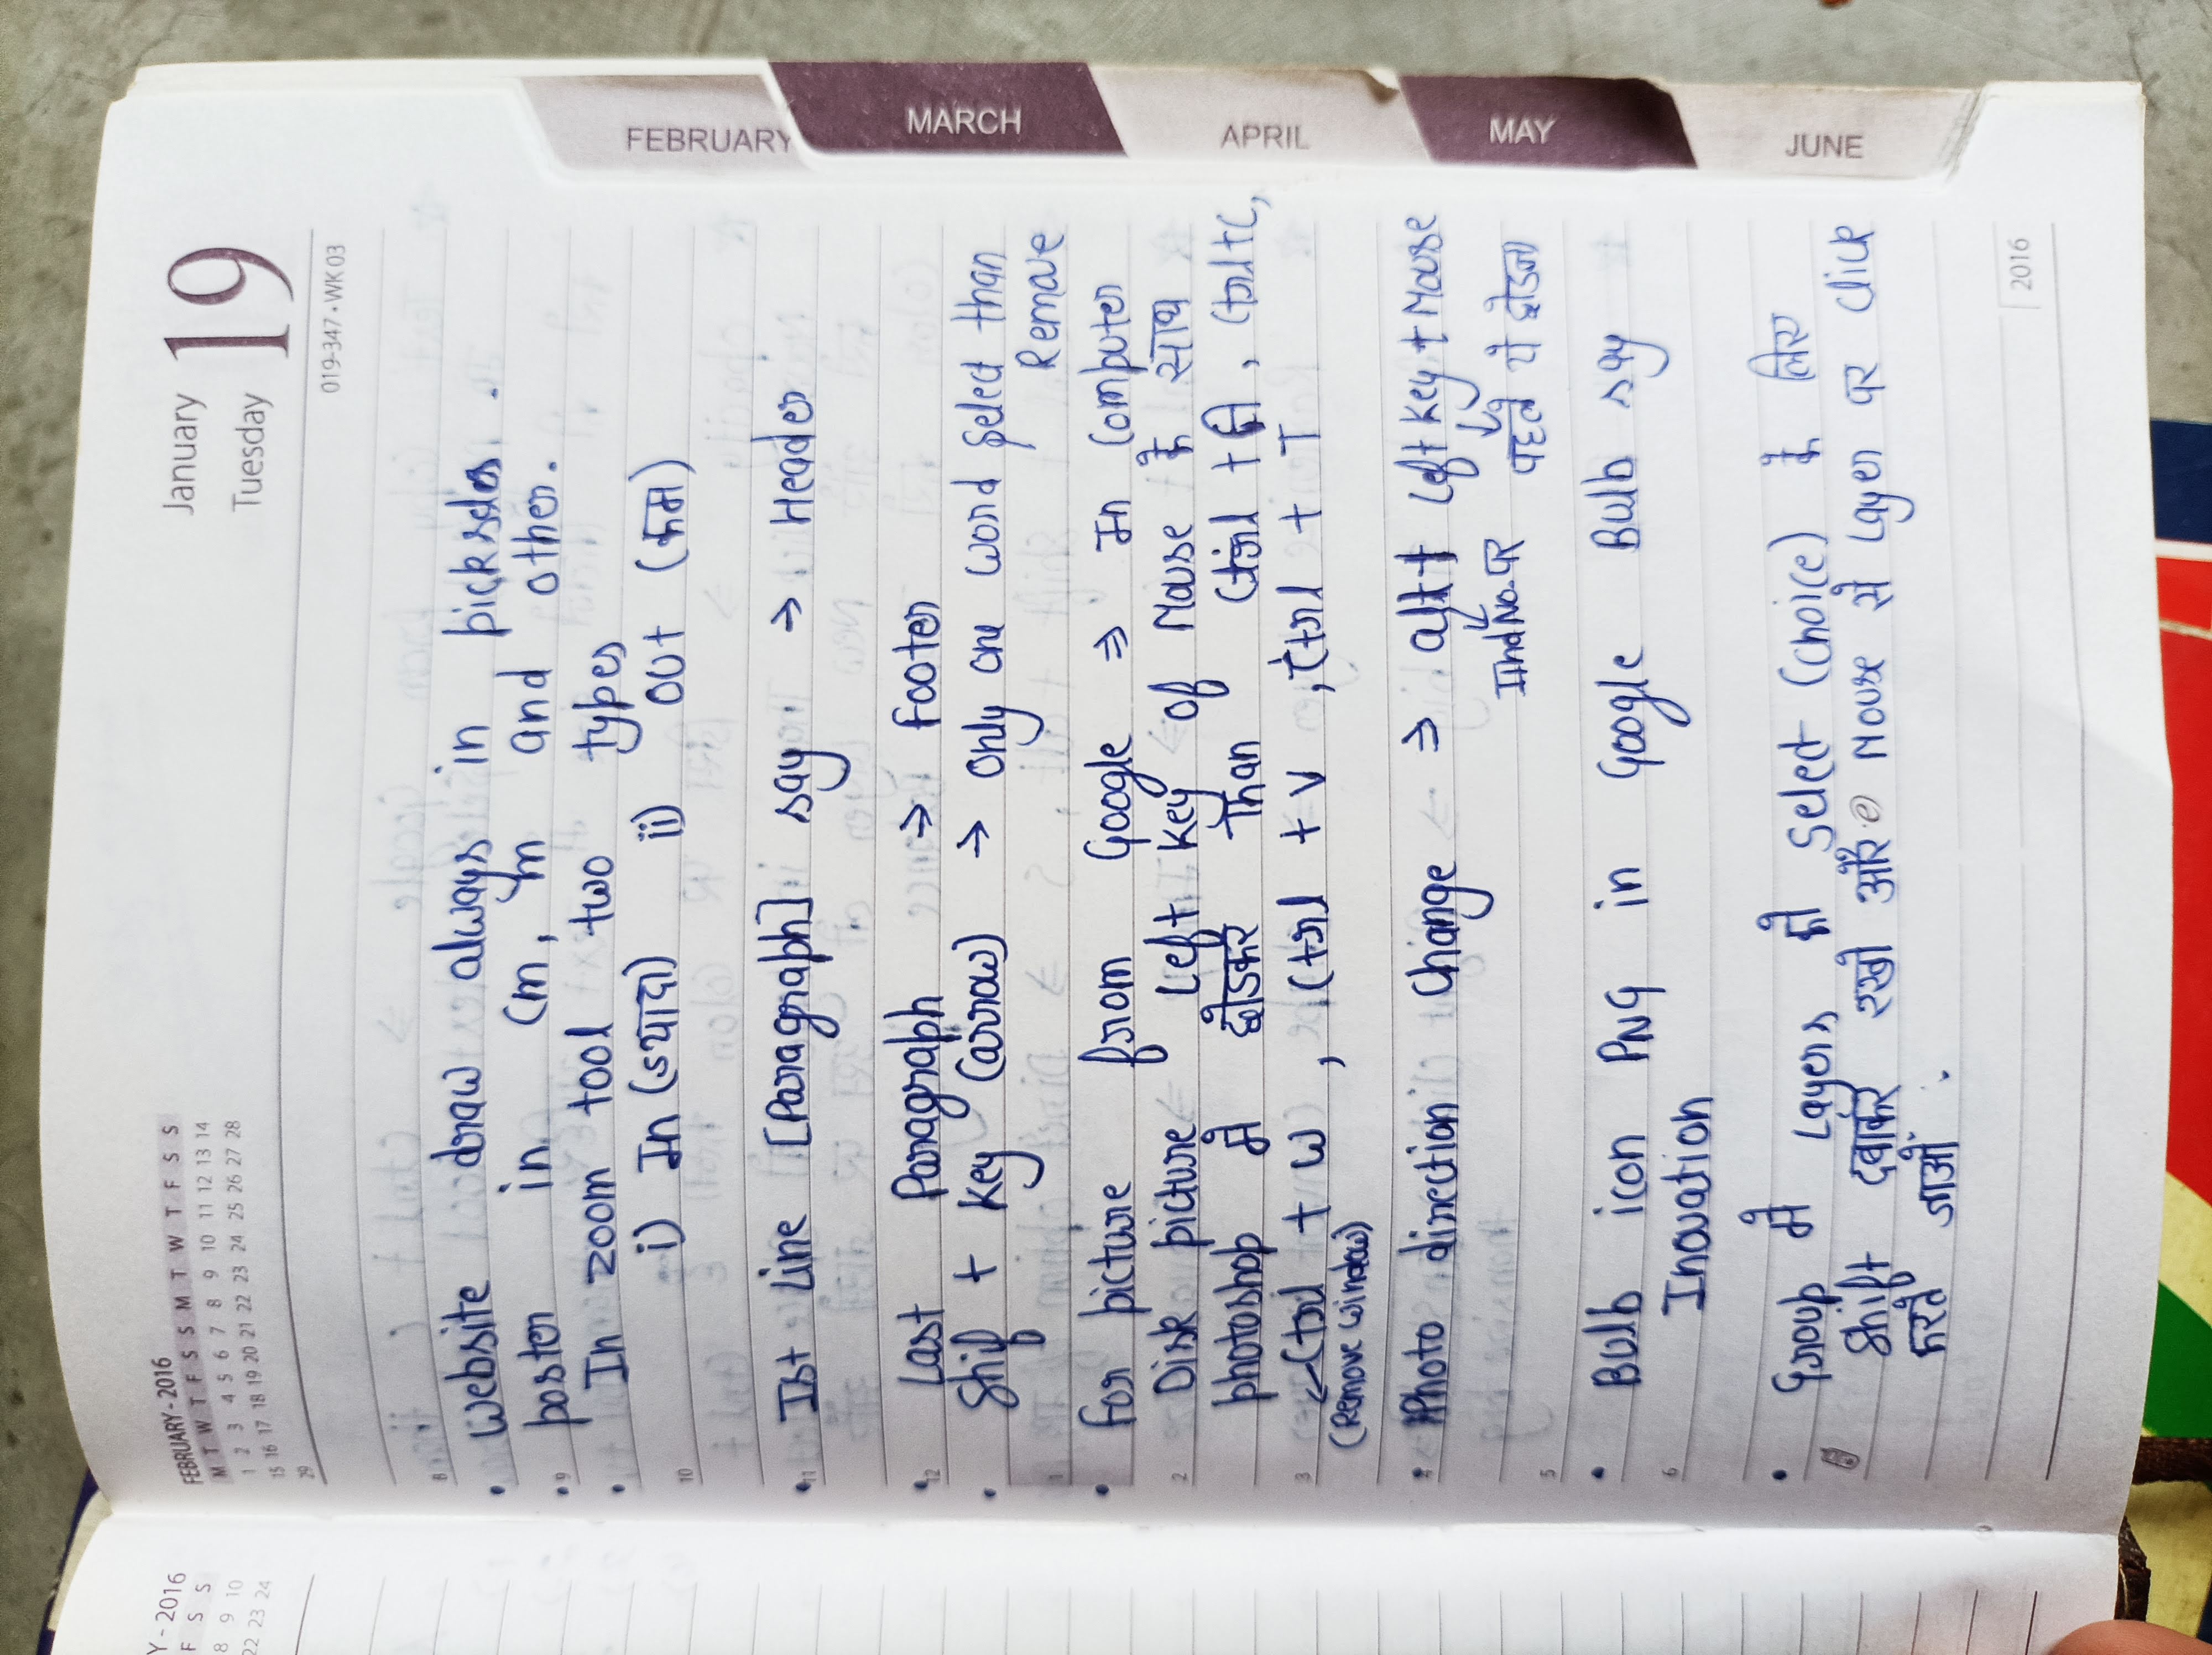 Y - 2016
F S S
8 9 10
22 23 24
FEBRUARY - 2016
M T W T F S S M T W T F S S
1 2 3 4 5 6 7 8 9 10 11 12 13 14
15 16 17 18 19 20 21 22 23 24 25 26 27 28
29
January
Tuesday
19
019-347 • WK 03
8
• Website draw always in picksels.
9
• poster in Cm, m and other.
• In zoom tool two types
10
i) In (ज्यादा) ii) Out (कम)
11
• Ist Line [Paragraph] say → Header
12
• Last Paragraph → Footer
• Shif + Key (arrow) → Only one word Select than
Remove
1
• For picture from Google ⇒ In Computer
2
Disk picture Left Key of Mouse के साथ
photoshop मे छोडकर Than Ctrl + , Ctrl+C,
3
Ctrl + W, Ctrl + V, Ctrl + T
(Remove window)
4
• Photo direction Change ⇒ alt + Left Key + Mouse
IInd No. पर पहले ये छोडना
5
• Bulb icon PNG in Google Bulb say
6
Inovation
• Group मे Layers को Select (choice) के लिए
Shift दबाकर रखो और Mouse से Layer पर Click
करते जाओं.
2016
FEBRUARY
MARCH
APRIL
MAY
JUNE